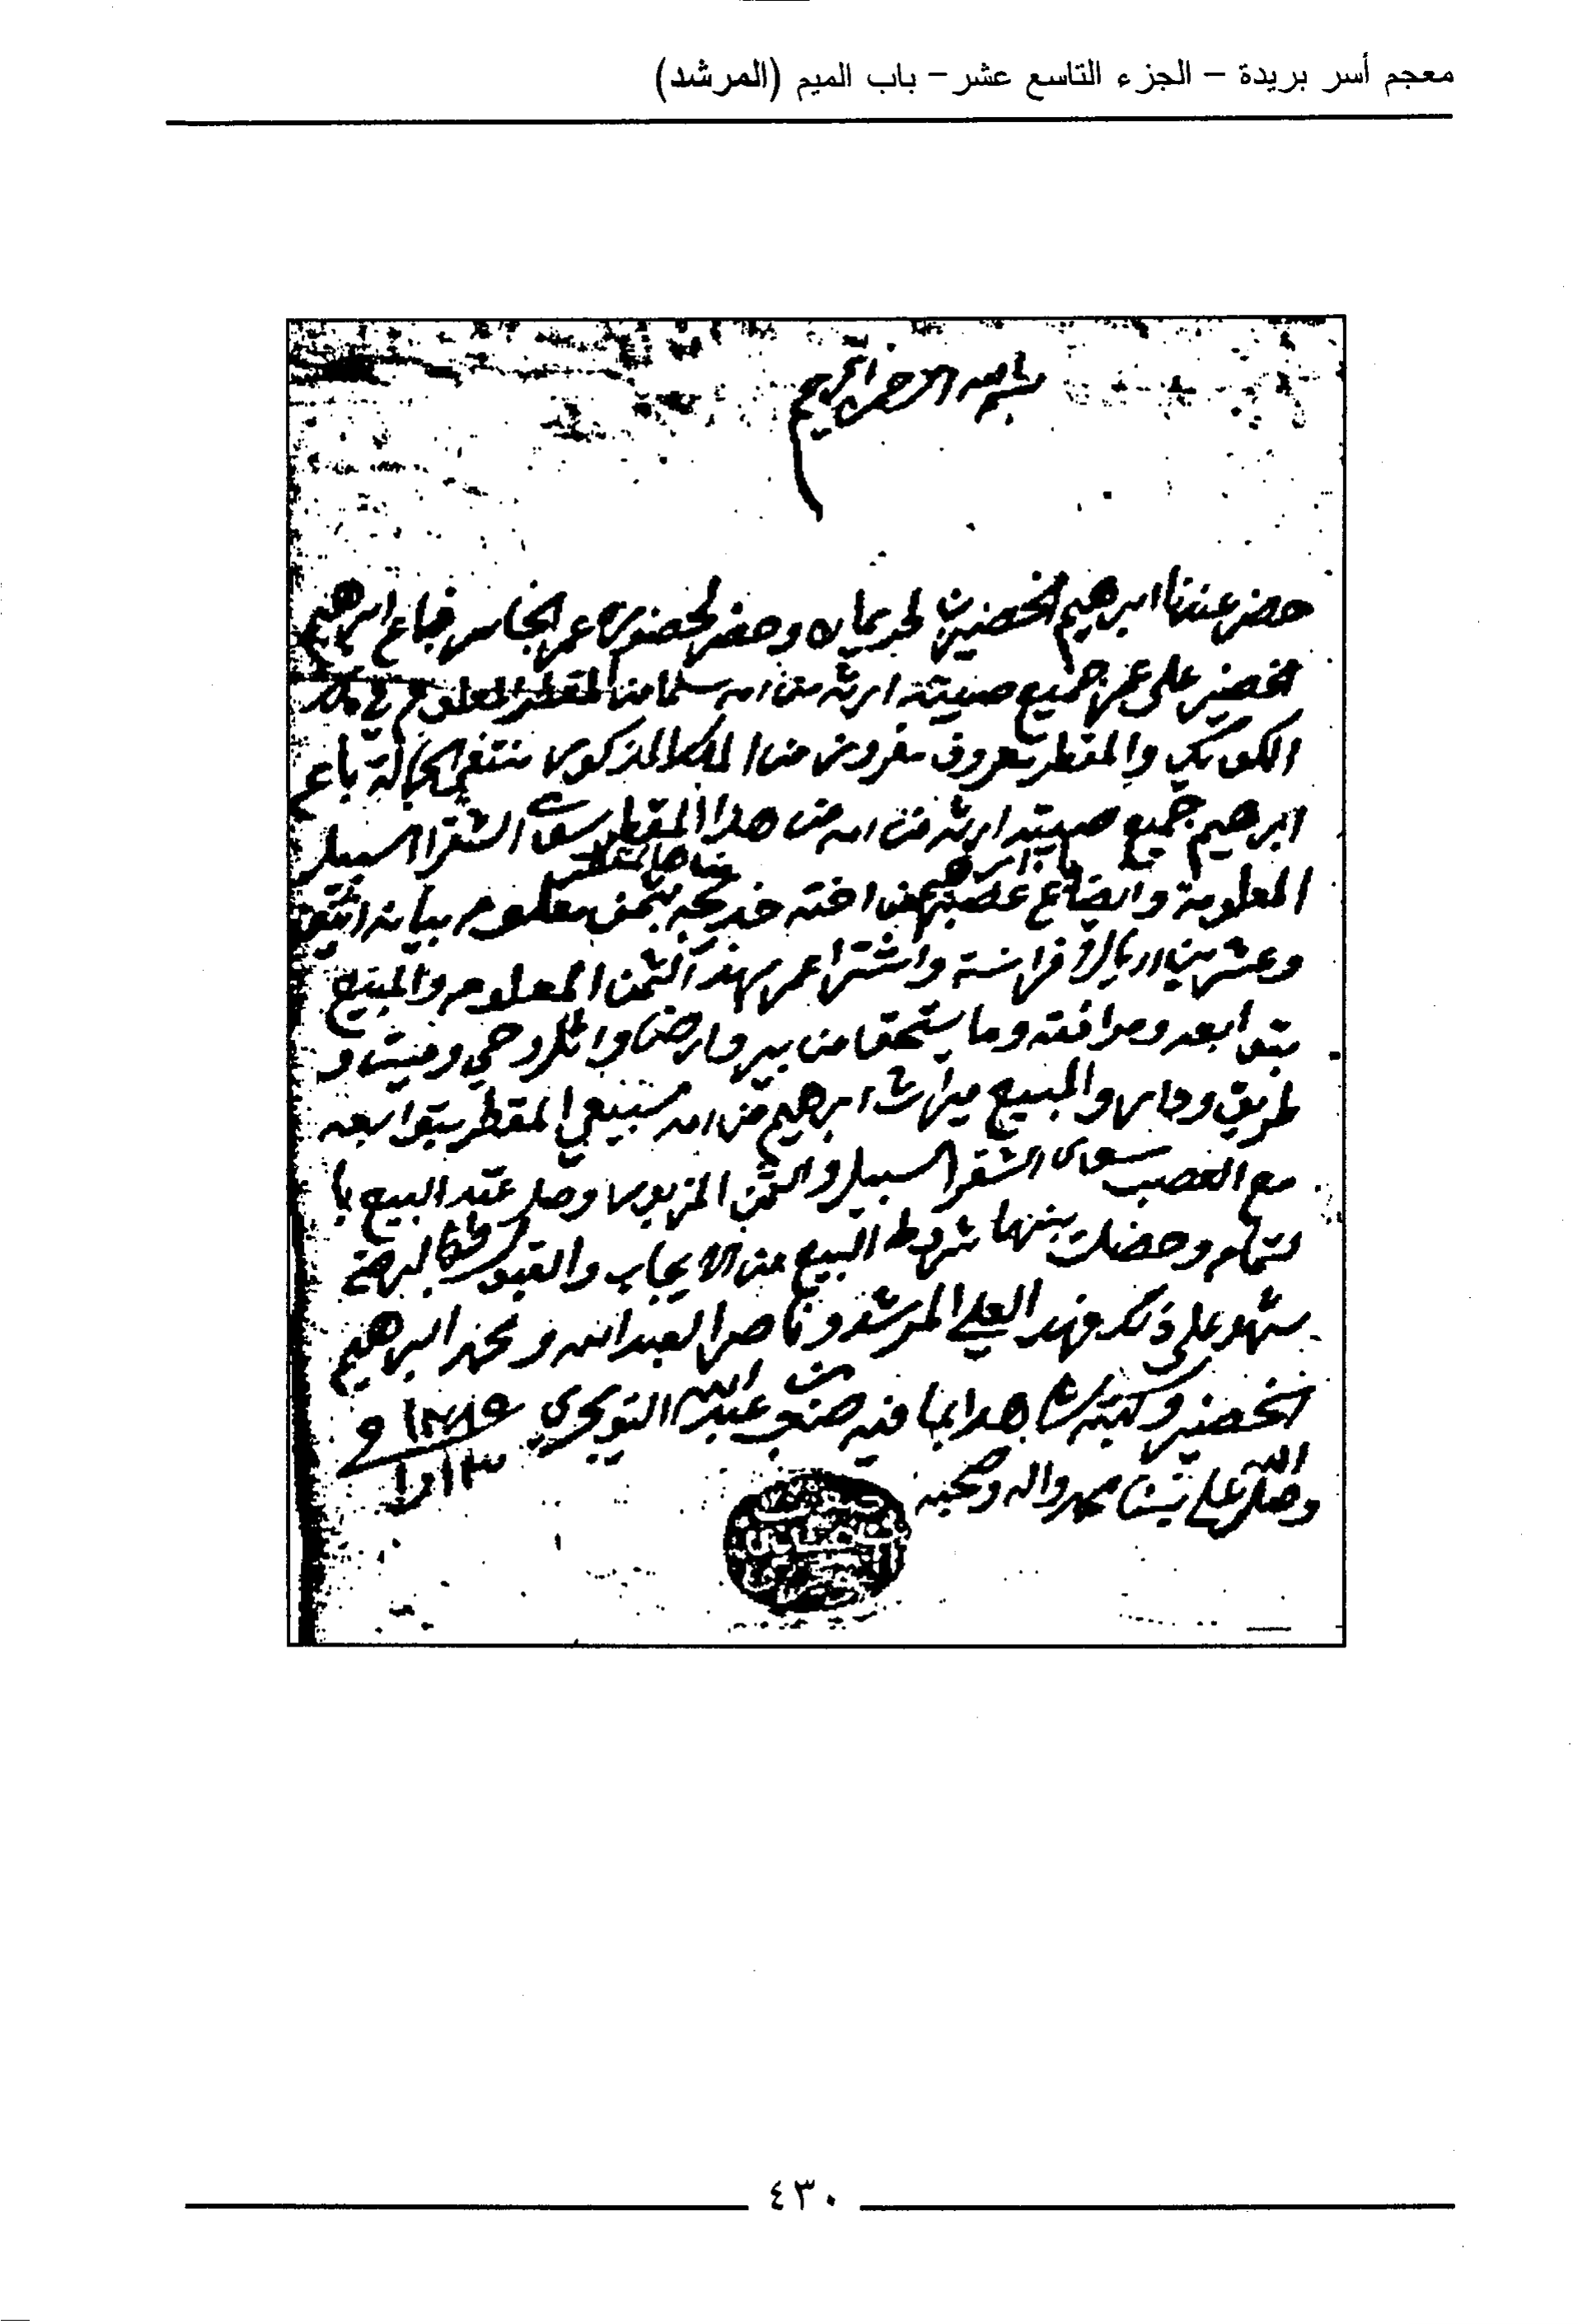 معجم أسر بريدة – الجزء التاسع عشر – باب الميم (المرشد)
بسم الله الرحمن الرحيم
حضر عندنا ابرهيم الخضير وحضر لحضوره عمر الجاسر فباع ابرهيم
الخضير على عمر جميع صيبته ارثه من امه من المقطر المعلوم في ملك
والمقطر معروف مفروز من الملك المذكور باع
ابرهيم جميع صيبته ارثه من امه من هذا المقطر سوى الشقرا السبيل
المعلومة وايضا باع ابرهيم من اخته بثمن معلوم بيانه اثنين
وعشرين اريال فرانسة واشترا عمر بهذ الثمن المعلوم والمبيع
بتوابعه ومرافقه وما يستحق من بير وارض واثل وحي وميت و
طريق ودار والمبيع ميراث ابرهيم من امه المقطر بتوابعه
مع سوى الشقرا السبيل والثمن المزبور وصل عقد البيع با
لتمام وحضلت بينهما شروط البيع من الايجاب والقبول
شهد على ذلك فهد العلي المرشد وناصر العبدالله ومحمد البرهيم
الخضير وكتبه شاهدا بما فيه صعب عبدالله التويجري ١٢٨٩ و
وصلى الله على نبينا محمد واله وصحبه
٤٣٠